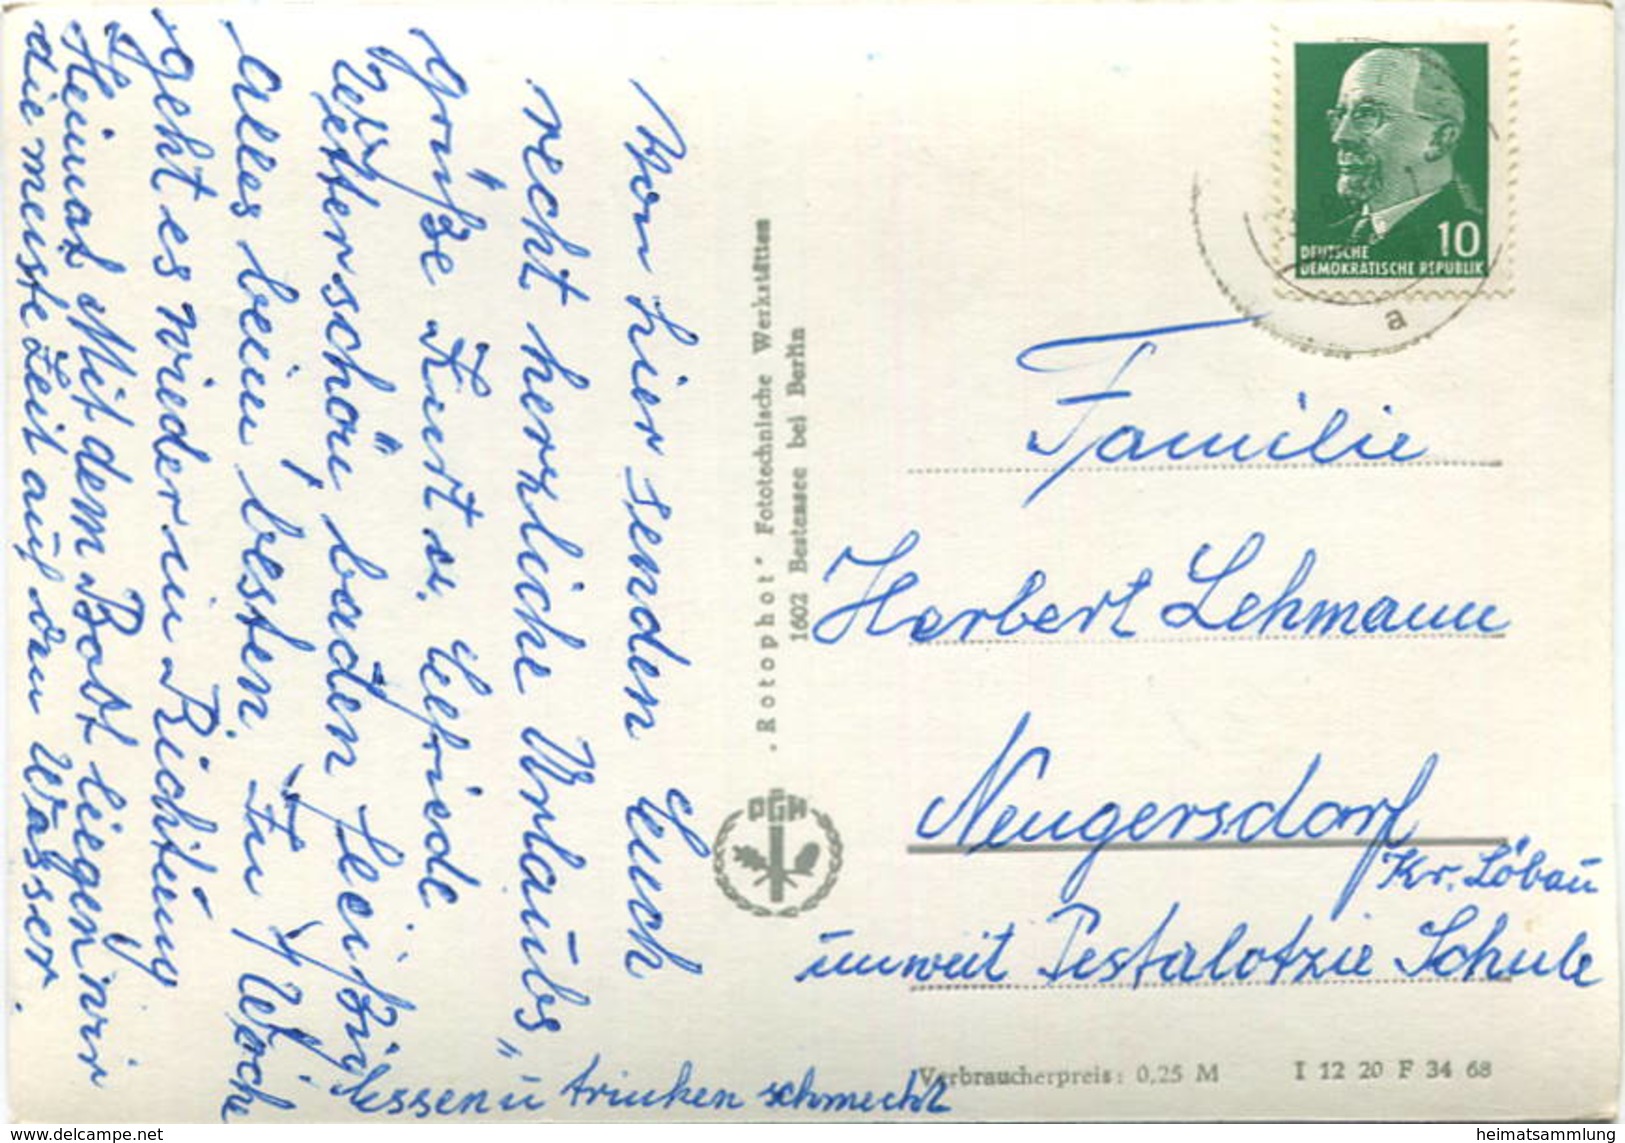 Von hier senden Euch
recht herzliche Urlaubs"
grüße Kurt u. Elfriede
Wetter schön baden fleißig
essen u trinken schmeckt
Alles beim besten. In 1 Woche
geht es wieder in Richtung
Heimat Mit dem Boot liegen wir
die meiste Zeit auf dem Wasser.
„Rotophot" Fototechnische Werkstätten
1602 Bestensee bei Berlin
PGH
10
DEUTSCHE
DEMOKRATISCHE REPUBLIK
a
Familie
Herbert Lehmann
Neugersdorf
Kr. Löbau
unweit Pestalotzie Schule
Verbraucherpreis: 0,25 M I 12 20 F 34 68
© www.delcampe.net
heimatsammlung